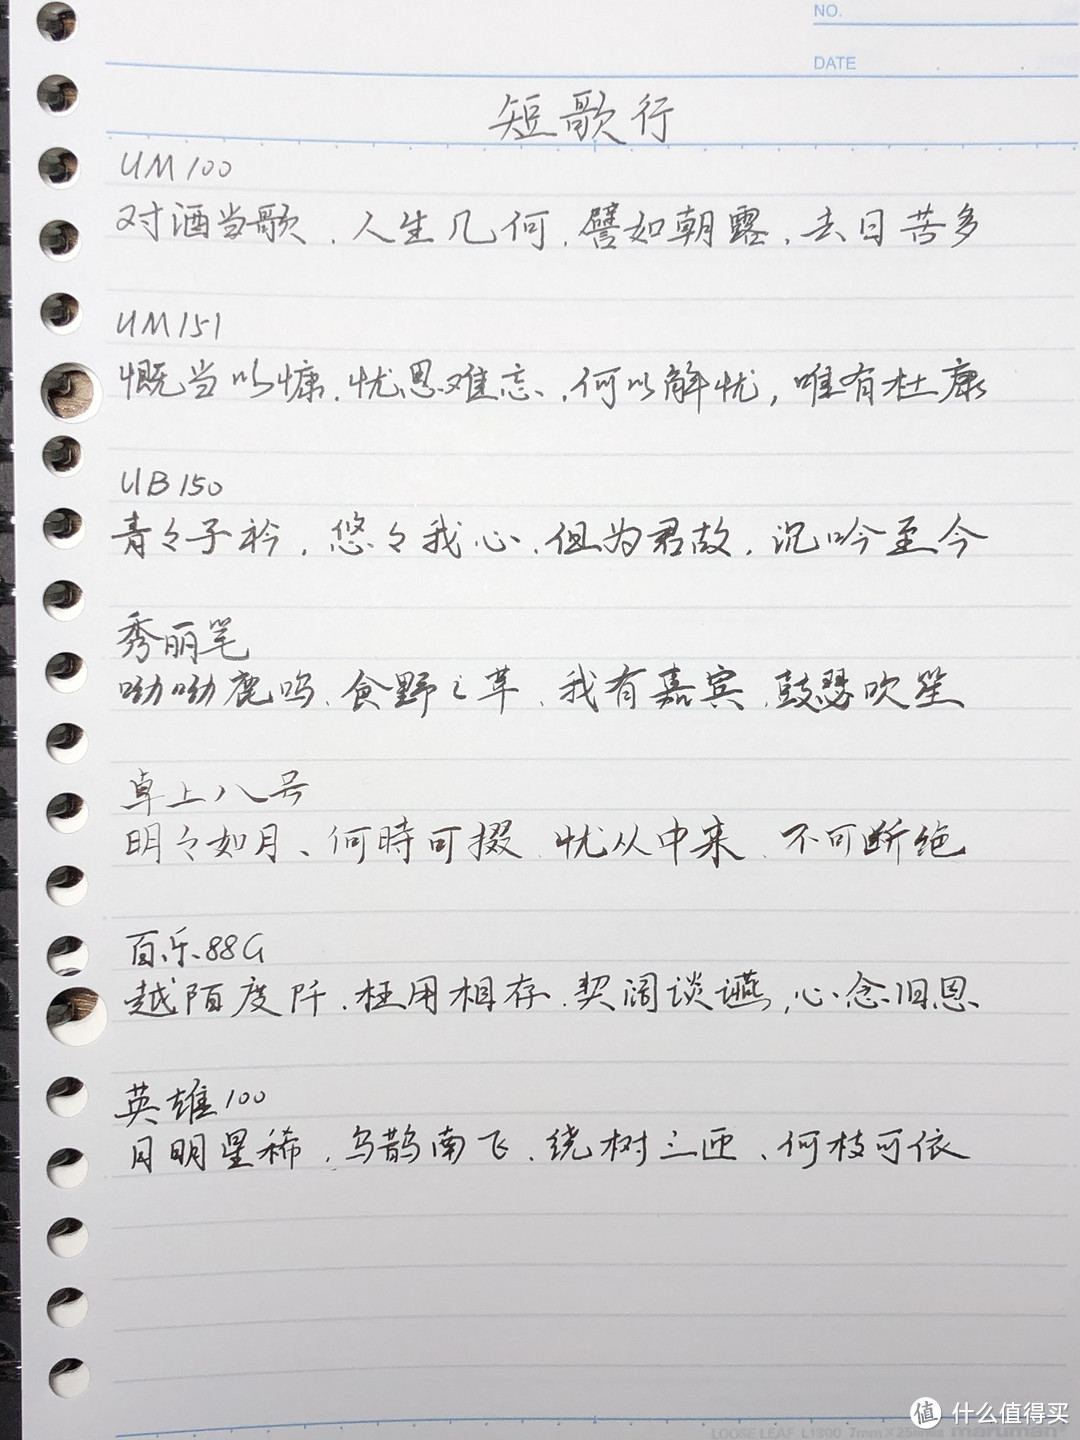 NO.
DATE
短歌行
UM100
对酒当歌、人生几何、譬如朝露、去日苦多
UM151
慨当以慷、忧思难忘、何以解忧，唯有杜康
UB150
青々子衿，悠々我心、但为君故，沉吟至今
秀丽笔
呦呦鹿鸣、食野之苹、我有嘉宾、鼓瑟吹笙
卓上八号
明々如月、何時可掇、忧从中来、不可断绝
百乐88G
越陌度阡、枉用相存、契阔谈讌，心念旧恩
英雄100
月明星稀，乌鹊南飞、绕树三匝、何枝可依
值 什么值得买
LOOSE LEAF L1300 7mm×25lines maruman